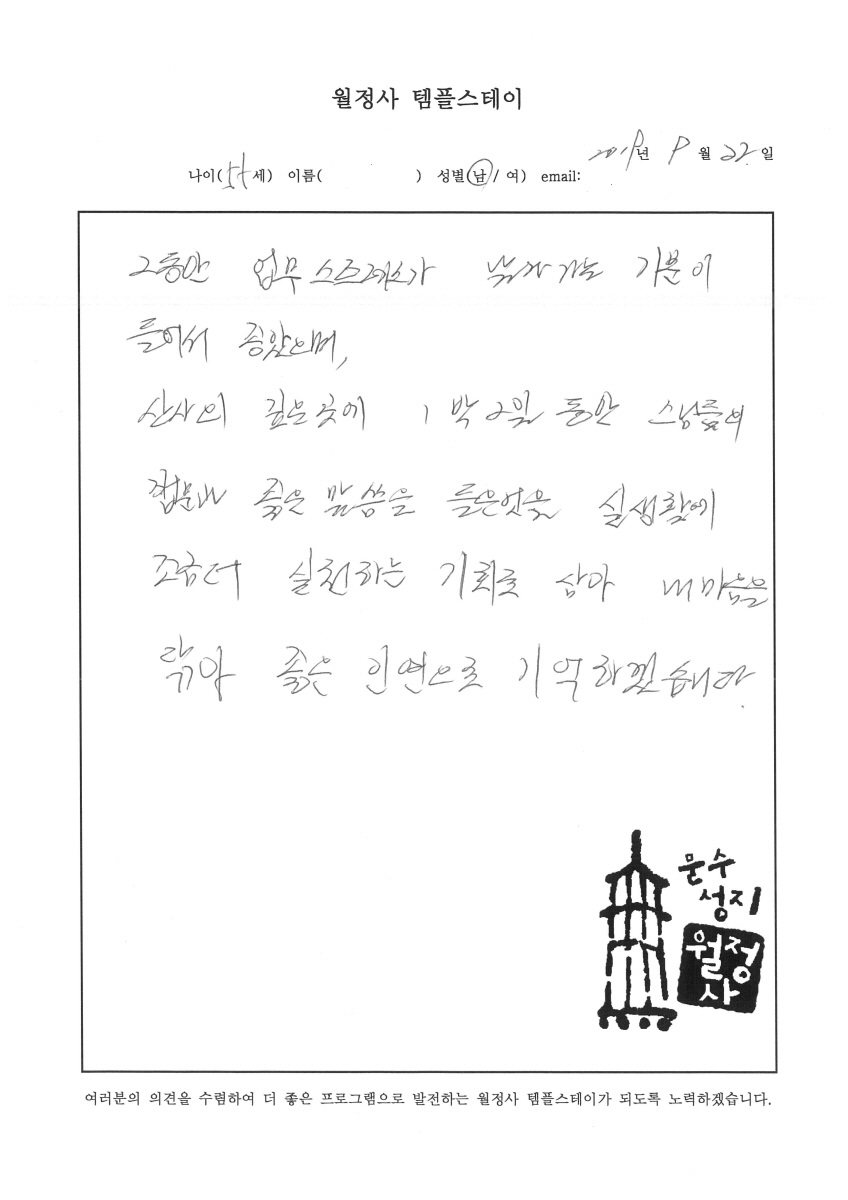 월정사 템플스테이
2019년 9월 22일
나이(54세) 이름( ) 성별(남/ 여) email:
그동안 업무 스트레스가 가는 기분이
들어서 좋았으며,
산사의 깊은곳에 1박2일 동안 스님들의
좋은 말씀을 들은것을 실생활에
조금더 실천하는 기회로 삼아 내마음을
닦아 좋은 인연으로 기억하겠습니다.
문수
성지
월정
사
여러분의 의견을 수렴하여 더 좋은 프로그램으로 발전하는 월정사 템플스테이가 되도록 노력하겠습니다.